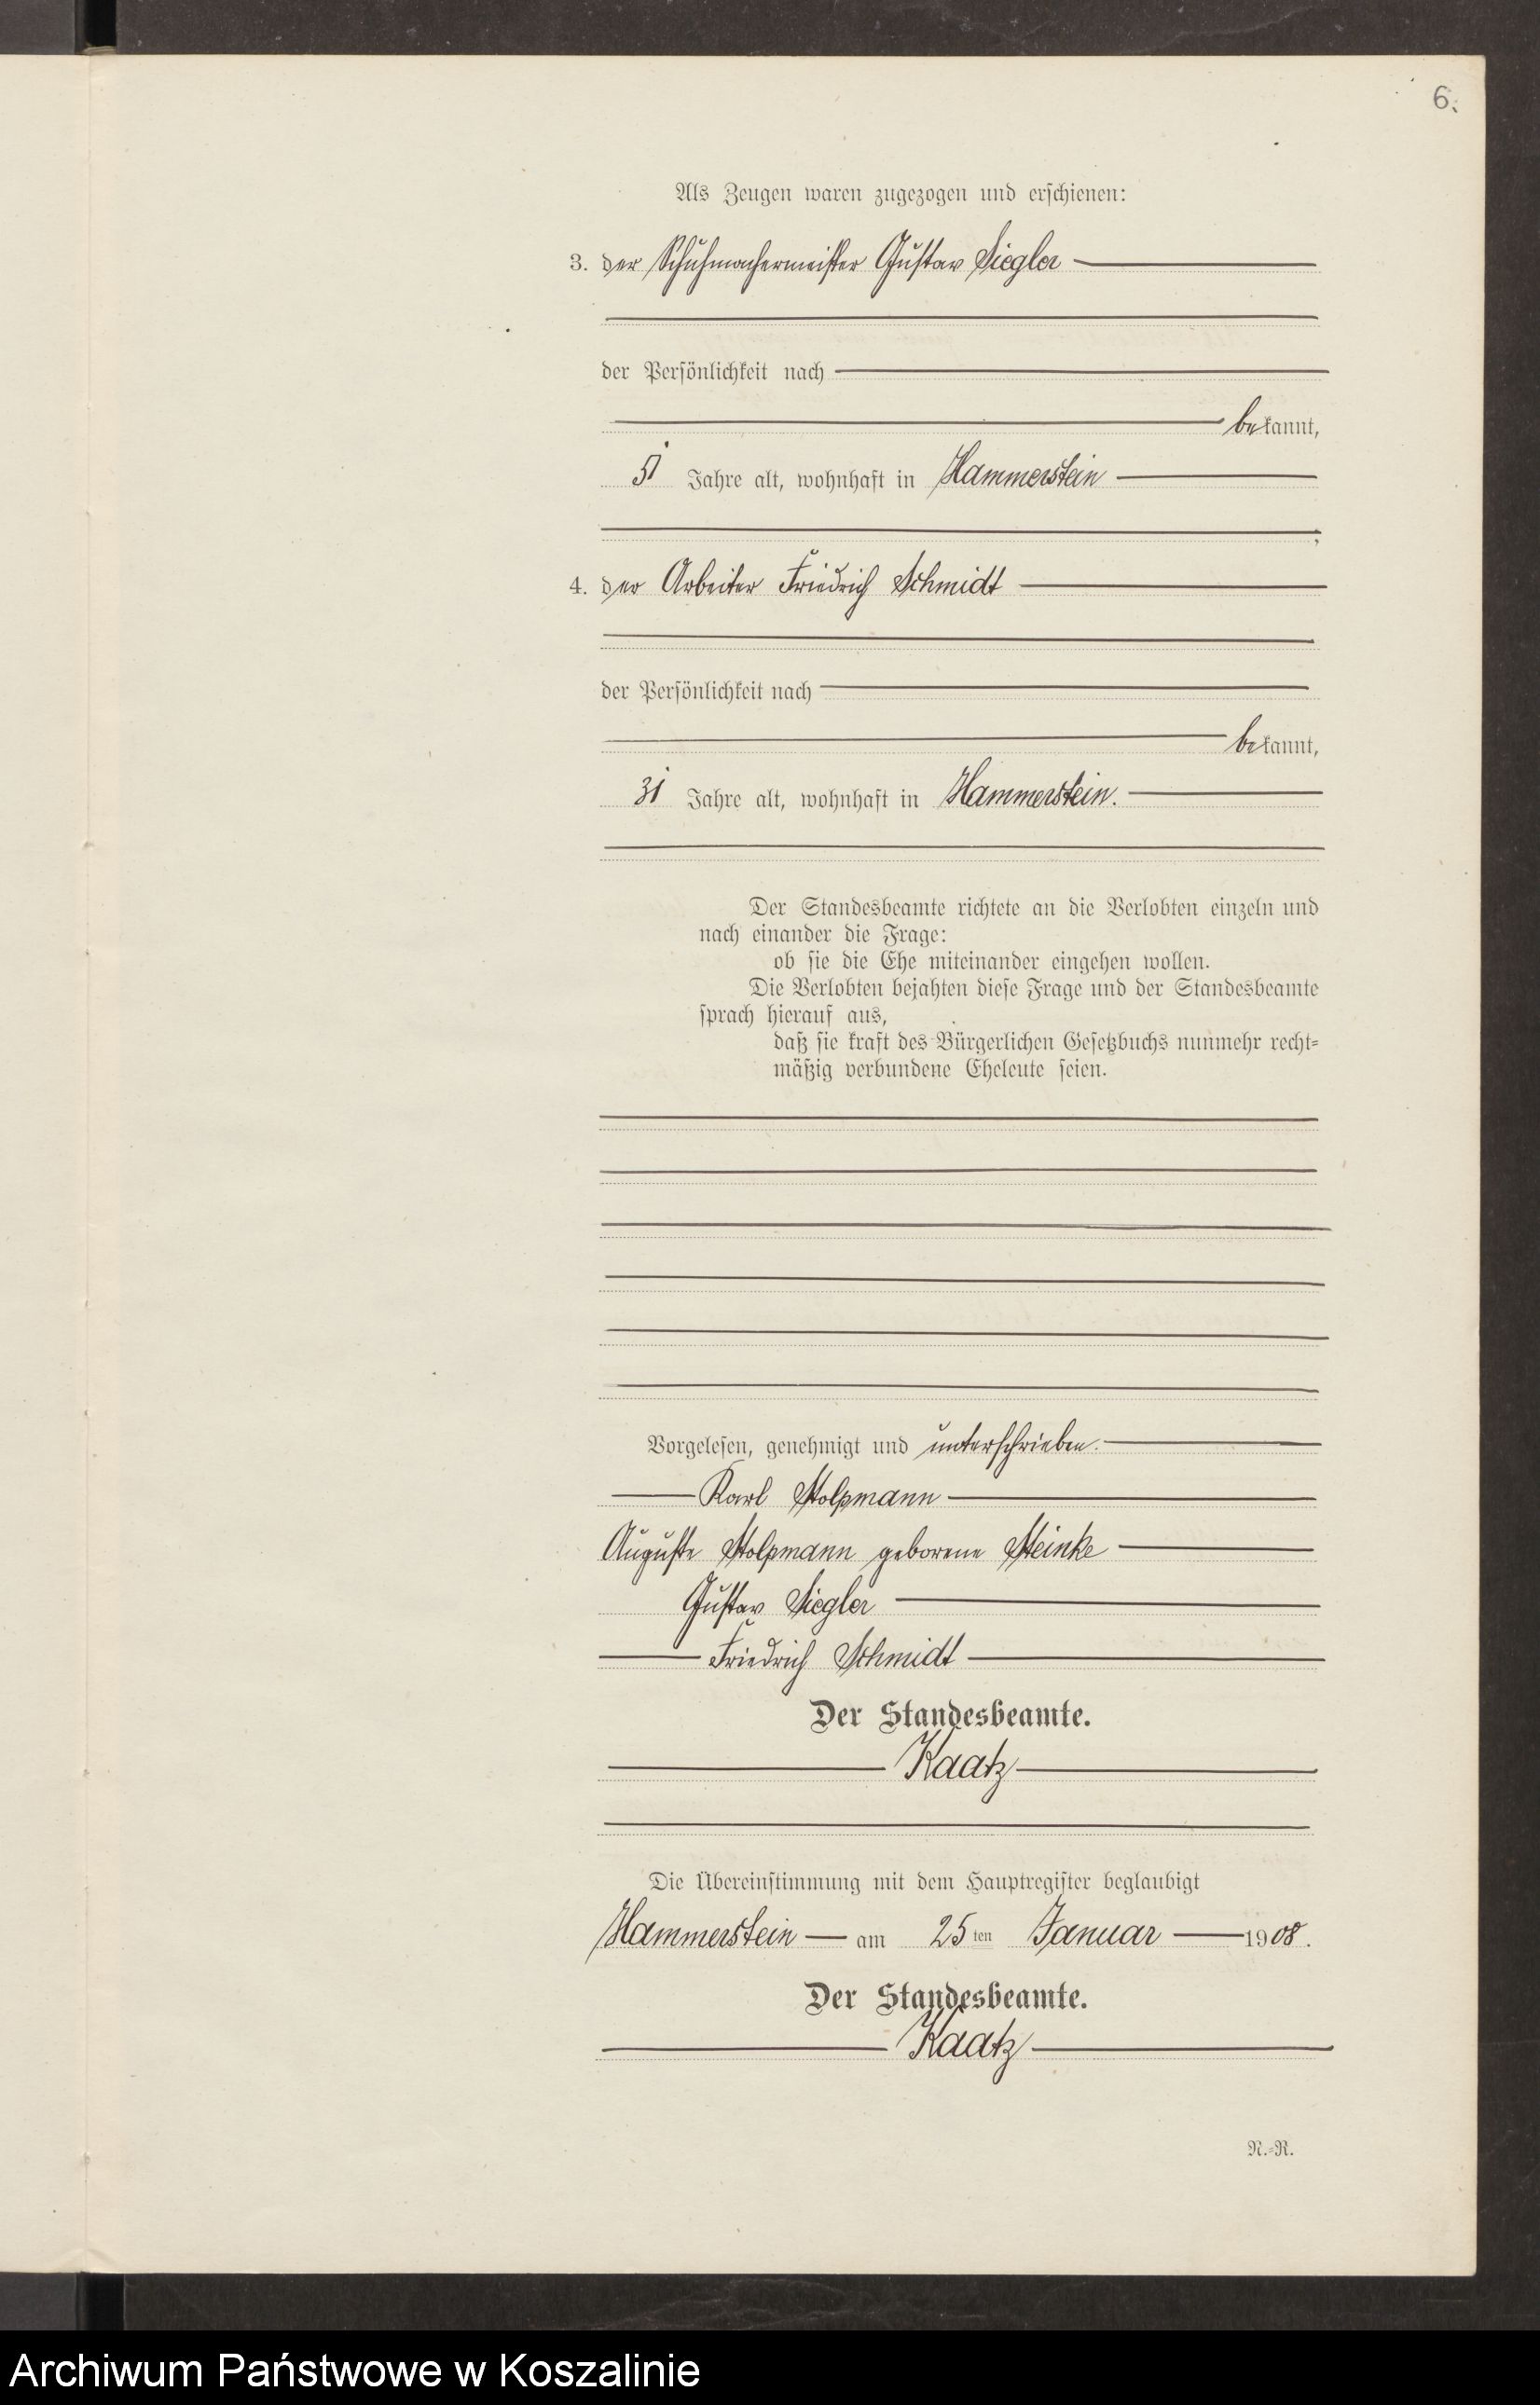 6.
Als Zeugen waren zugezogen und erschienen:
3. der Schuhmachermeister Gustav Siegler
der Persönlichkeit nach
bekannt,
51 Jahre alt, wohnhaft in Hammerstein
;
4. der Arbeiter Friedrich Schmidt
der Persönlichkeit nach
bekannt,
31 Jahre alt, wohnhaft in Hammerstein.
Der Standesbeamte richtete an die Verlobten einzeln und
nach einander die Frage:
ob sie die Ehe miteinander eingehen wollen.
Die Verlobten bejahten diese Frage und der Standesbeamte
sprach hierauf aus,
daß sie kraft des Bürgerlichen Gesetzbuchs nunmehr recht=
mäßig verbundene Eheleute seien.
Vorgelesen, genehmigt und unterschrieben.
Karl Stolpmann
Auguste Stolpmann geborene Steinke
Gustav Siegler
Friedrich Schmidt
Der Standesbeamte.
Kaatz
Die Übereinstimmung mit dem Hauptregister beglaubigt
Hammerstein am 25ten Januar 1908.
Der Standesbeamte.
Kaatz
N.=R.
Archiwum Państwowe w Koszalinie